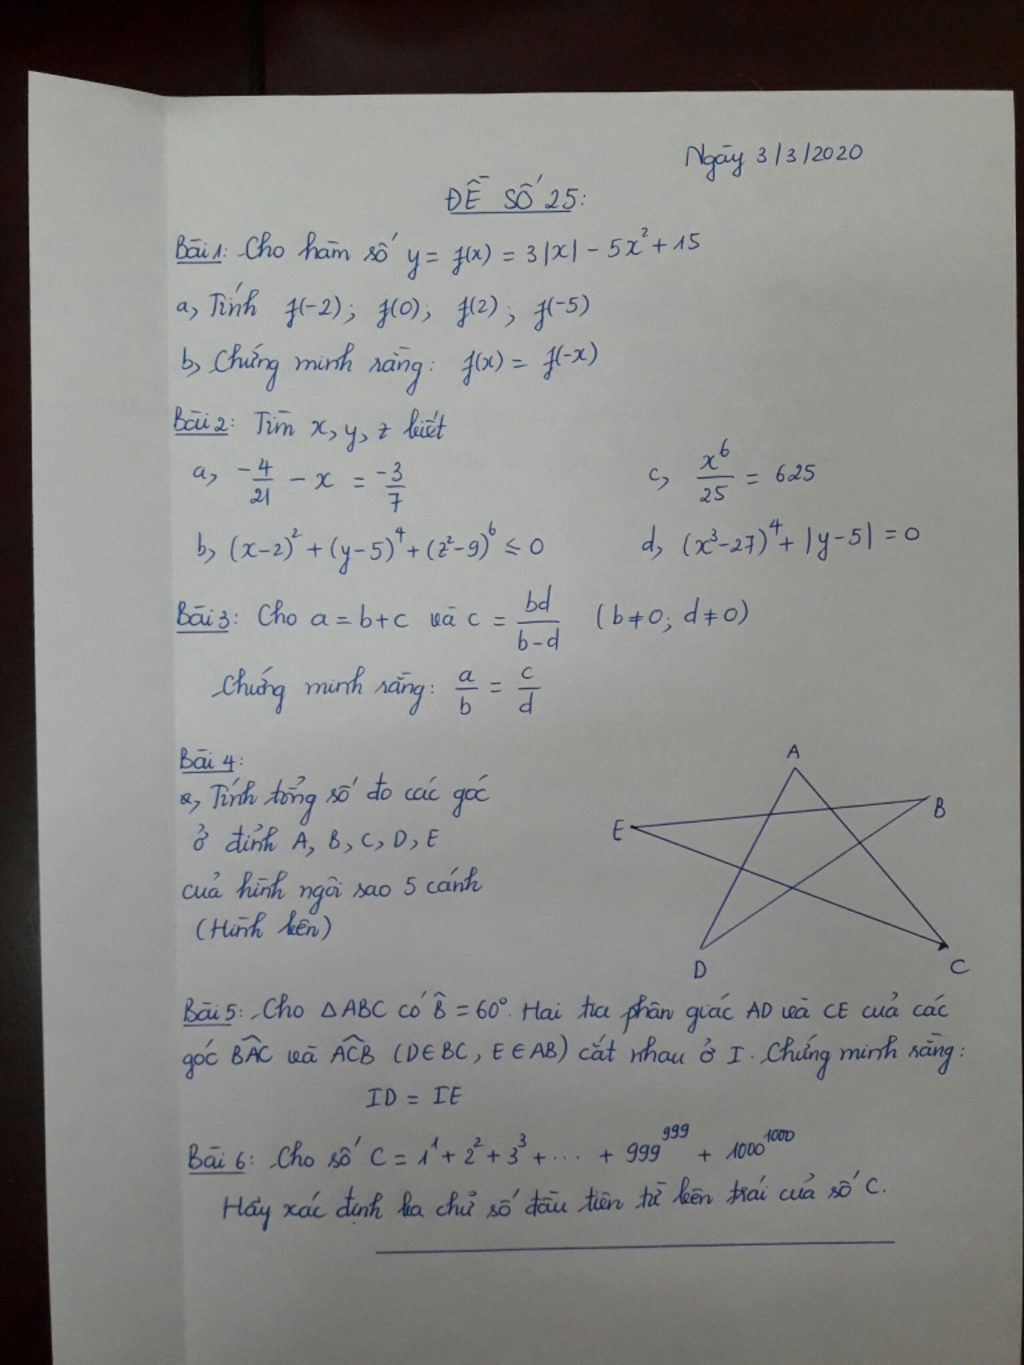 Ngày 3/3/2020
ĐỀ SỐ 25:
Bài 1: Cho hàm số y = f(x) = 3|x| - 5x² + 15
a, Tính f(-2); f(0); f(2); f(-5)
b, Chứng minh rằng: f(x) = f(-x)
Bài 2: Tìm x, y, z biết
a, -4/21 - x = -3/7
c, x⁶/25 = 625
b, (x-2)² + (y-5)⁴ + (z²-9)⁶ ≤ 0
d, (x³-27)⁴ + |y-5| = 0
Bài 3: Cho a = b+c và c = bd/(b-d) (b≠0; d≠0)
Chứng minh rằng: a/b = c/d
Bài 4:
a, Tính tổng số đo các góc
ở đỉnh A, B, C, D, E
của hình ngôi sao 5 cánh
(Hình bên)
A
B
E
D
C
Bài 5: Cho △ABC có B̂ = 60°. Hai tia phân giác AD và CE của các
góc BAC và ACB (D∈BC, E∈AB) cắt nhau ở I. Chứng minh rằng:
ID = IE
Bài 6: Cho số C = 1¹ + 2² + 3³ + ... + 999⁹⁹⁹ + 1000¹⁰⁰⁰
Hãy xác định ba chữ số đầu tiên từ bên trái của số C.